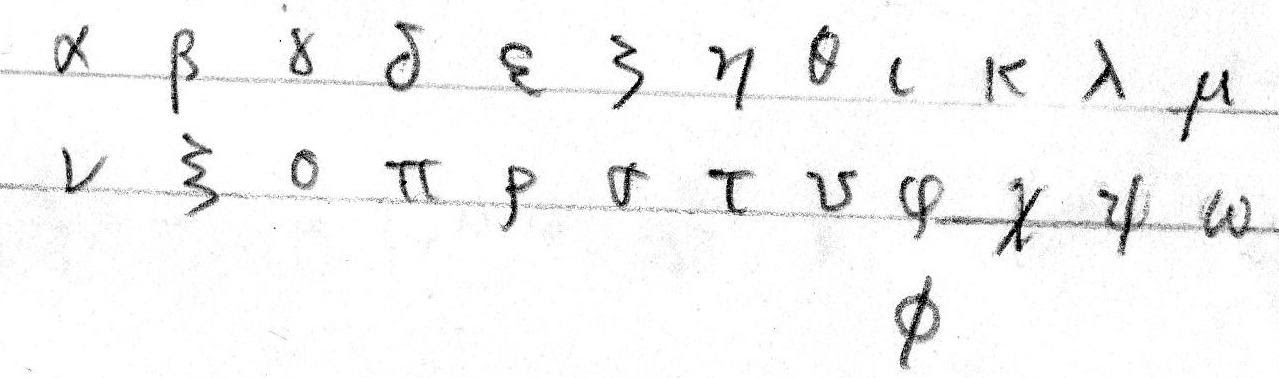 α β γ δ ε ζ η θ ι κ λ μ
ν ξ ο π ρ σ τ υ φ χ ψ ω
ϕ